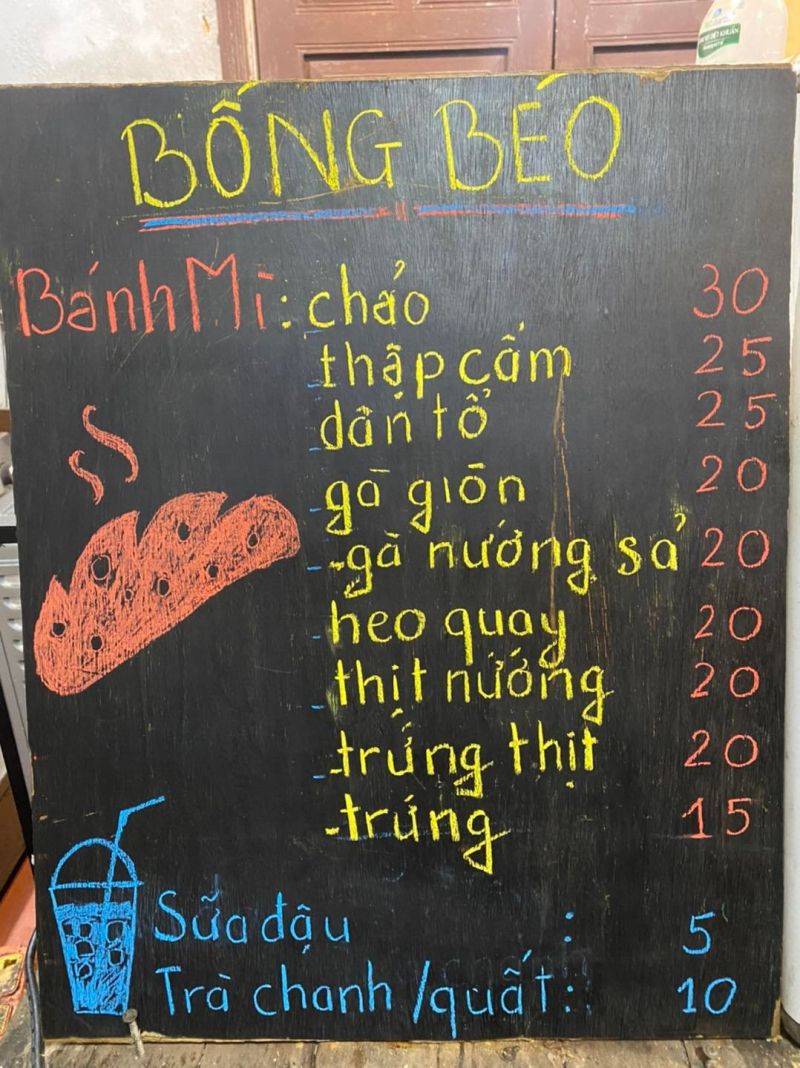 BỐNG BÉO
Bánh Mì: chảo 30
- thập cẩm 25
- dân tổ 25
- gà giòn 20
- gà nướng sả 20
- heo quay 20
- thịt nướng 20
- trứng thịt 20
- trứng 15
Sữa đậu : 5
Trà chanh /quất: 10